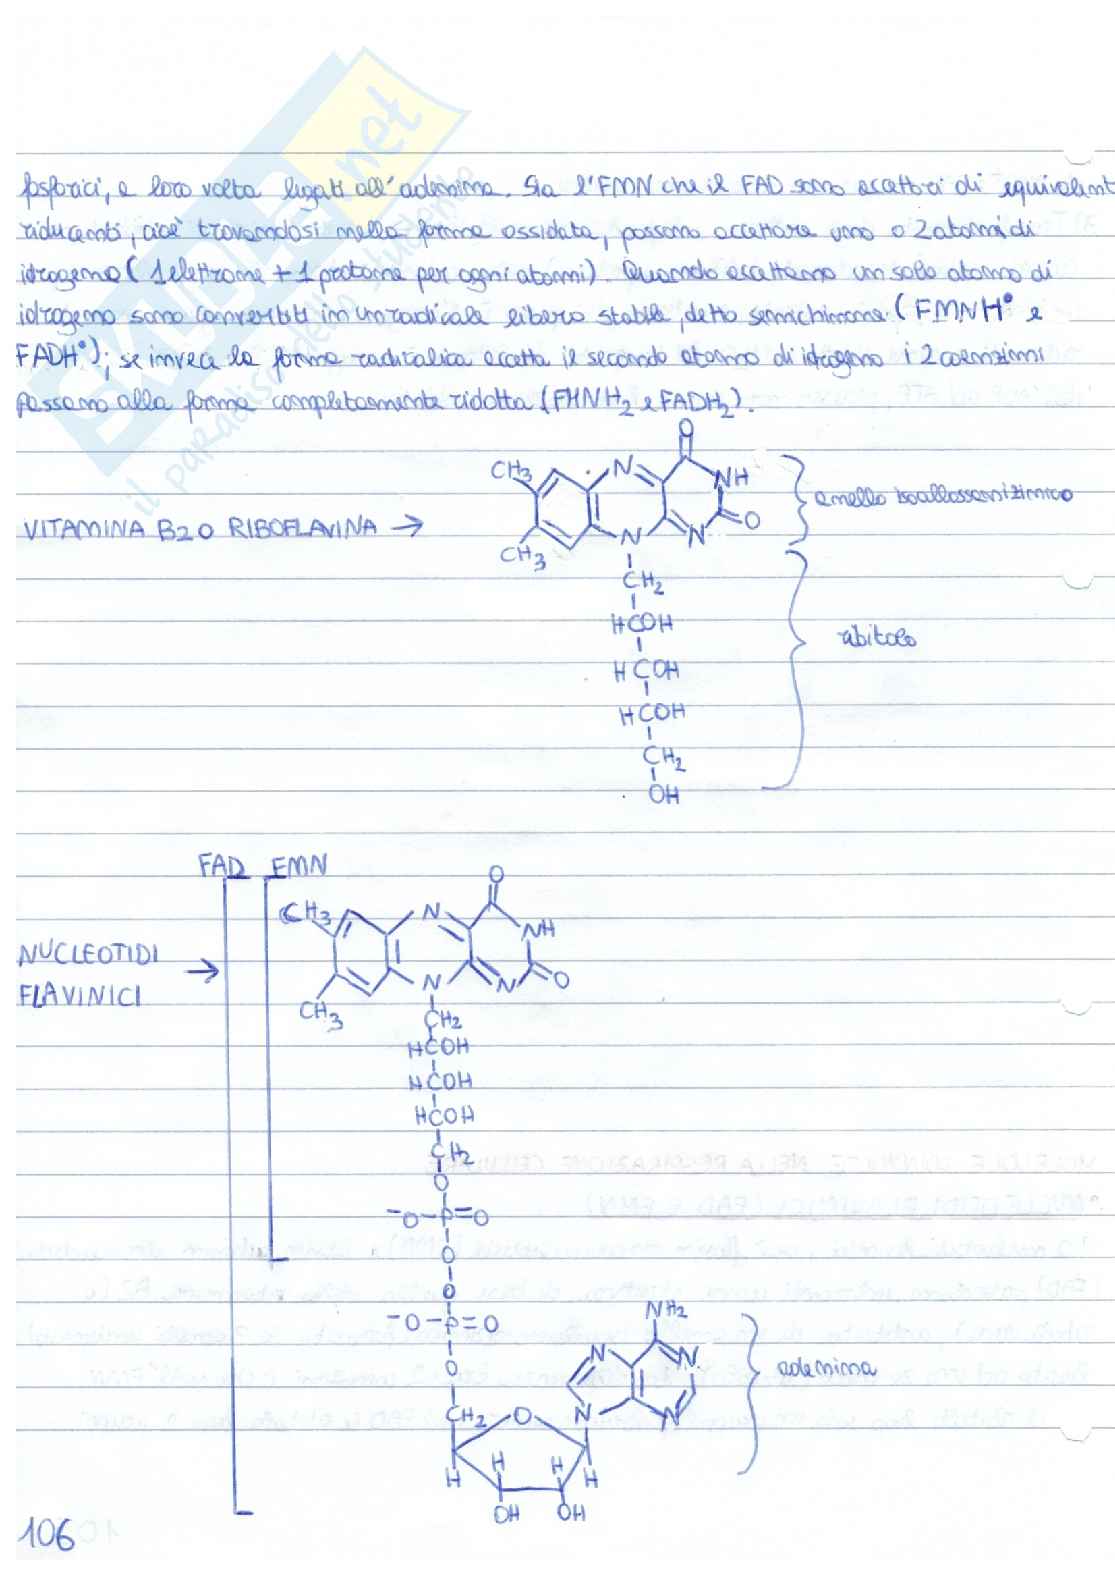 fosforici, a loro volta legati all'adenina. Sia l'FMN che il FAD sono accettori di equivalenti
riducenti, cioè trovandosi nella forma ossidata, possono accettare uno o 2 atomi di
idrogeno (1 elettrone + 1 protone per ogni atomi). Quando accettano un solo atomo di
idrogeno sono convertiti in un radicale libero stabile, detto semichinone (FMNH° e
FADH°); se invece la forma radicalica accetta il secondo atomo di idrogeno i 2 coenzimi
passano alla forma completamente ridotta (FMNH2 e FADH2).
VITAMINA B2 O RIBOFLAVINA →
O
CH3 N NH
anello isoallossazinico
CH3 N N O
CH2
HCOH
ribitolo
HCOH
HCOH
CH2
OH
FAD FMN
O
CH3 N NH
NUCLEOTIDI →
FLAVINICI
CH3 N N O
CH2
HCOH
HCOH
HCOH
CH2
O
-O-P=O
O
O
-O-P=O NH2
O N N
adenina
CH2 O N N
H H H H
OH OH
106
skuola.net
il paradiso dello studente